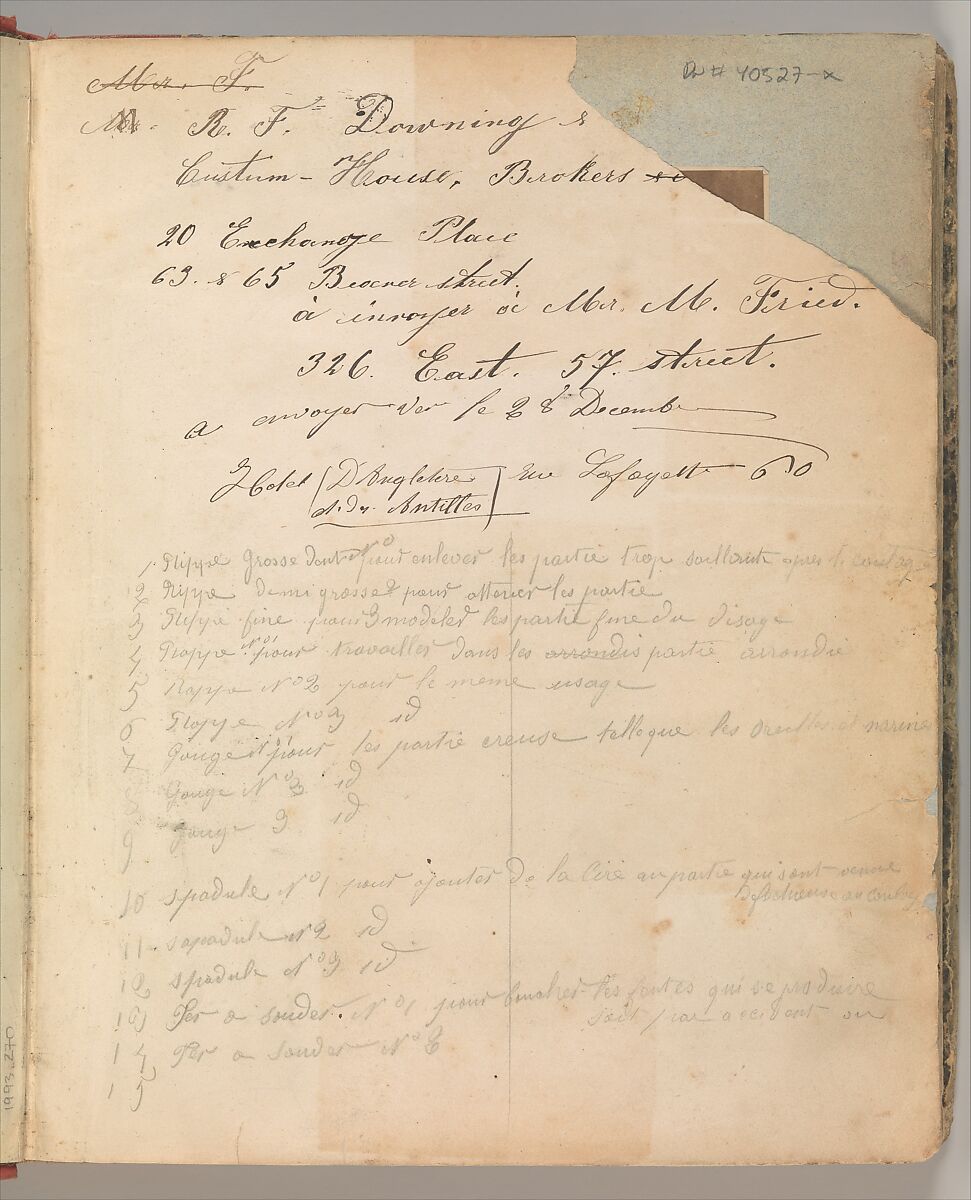 DR # 40527-x
Mr. F.
Mr. R. F. Downing &
Custum-House, Brokers
20 Exchange Place
63. & 65 Beaver street.
à envoyer à Mr. M. Fried.
326. East. 57. street.
a envoyer ver le 28 Decembre
Hotel (D'Angleterre rue Lafayette 60
et des Antilles)
1 Rippe Grosse Dent No pour enlever les partie trop saillante apres le coulage
2 Rippe demi grosse 2 pour attenier les partie
3 Rippe fine 3 pour modeler les partie fine du visage
4 Rappe No 1 pour travailler dans les arrondis partie arrondie
5 Rappe No 2 pour le meme usage
6 Rappe No 3 id
7 Gouge No 1 pour les partie creuse telleque les oreilles et narine
8 Gouge No 3 id
9 Gouge 3 id
10 spadule No 1 pour ajouter de la Cire au partie qui sont venue
Defectueuse au
11 sapadule No 2 id
12 spadule No 3 id
13 Fer a souder. No 1 pour boucher les fentes qui se produire
soit par accident ou
14 Fer a souder No 2
15
1993.270